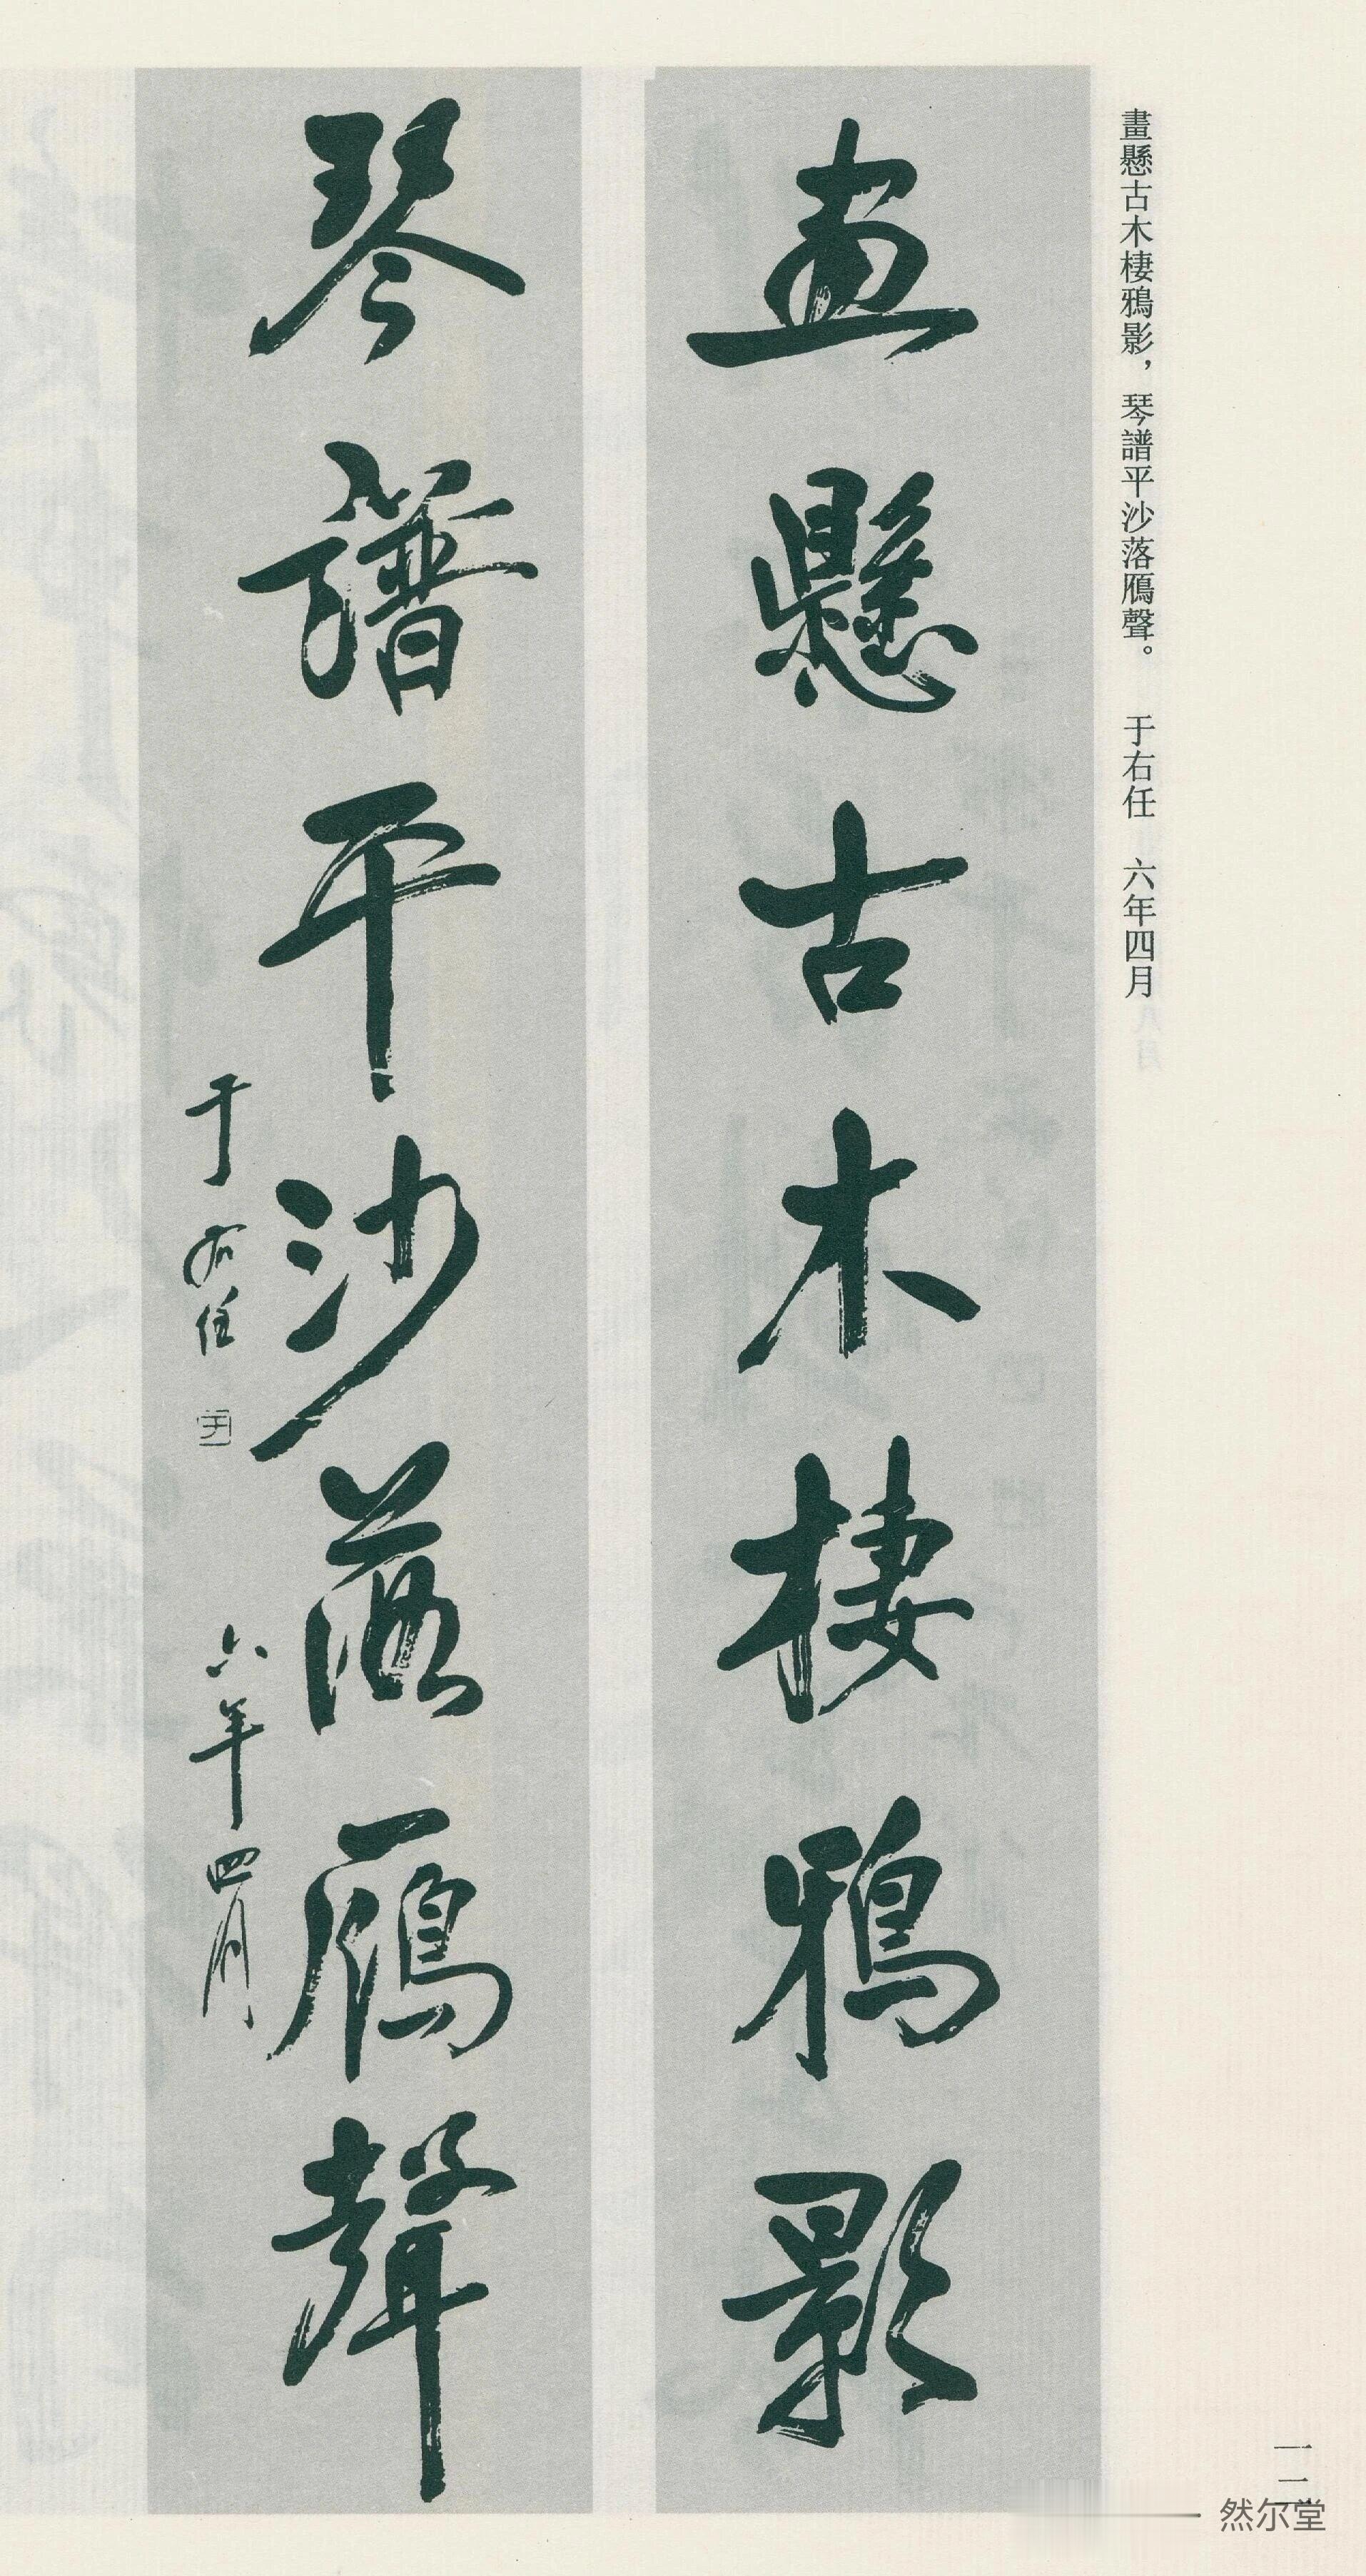 畫懸古木棲鴉影，琴譜平沙落鴈聲。 于右任 六年四月
畫懸古木棲鴉影
琴譜平沙落鴈聲
于右任 六年四月
一二
然尔堂